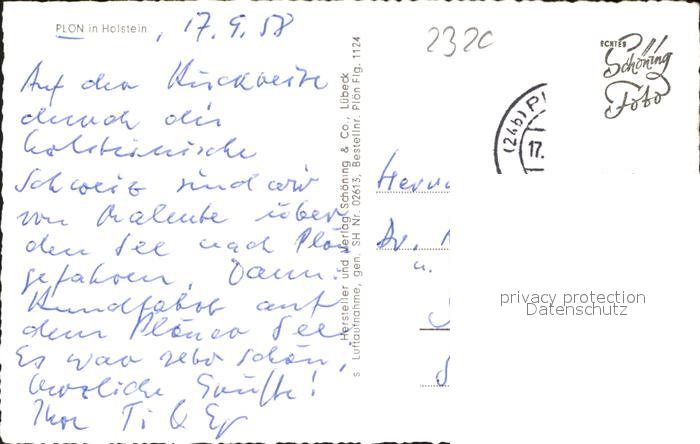 PLÖN in Holstein, 17.9.58
Auf der Rückreise
durch die
holsteinische
Schweiz sind wir
von Malente über
den See nach Plön
gefahren. Dann:
Rundfahrt auf
dem Plöner See.
Es war sehr schön,
herzliche Grüße!
Ihre
Hersteller und Verlag: Schöning & Co., Lübeck
Luftaufnahme, gen. SH Nr. 02613, Bestellnr. Plön Flg. 1124
2320
ECHTES
Schöning
Foto
(24b) Pl
17.
Herrn
Dr.
u.
privacy protection
Datenschutz